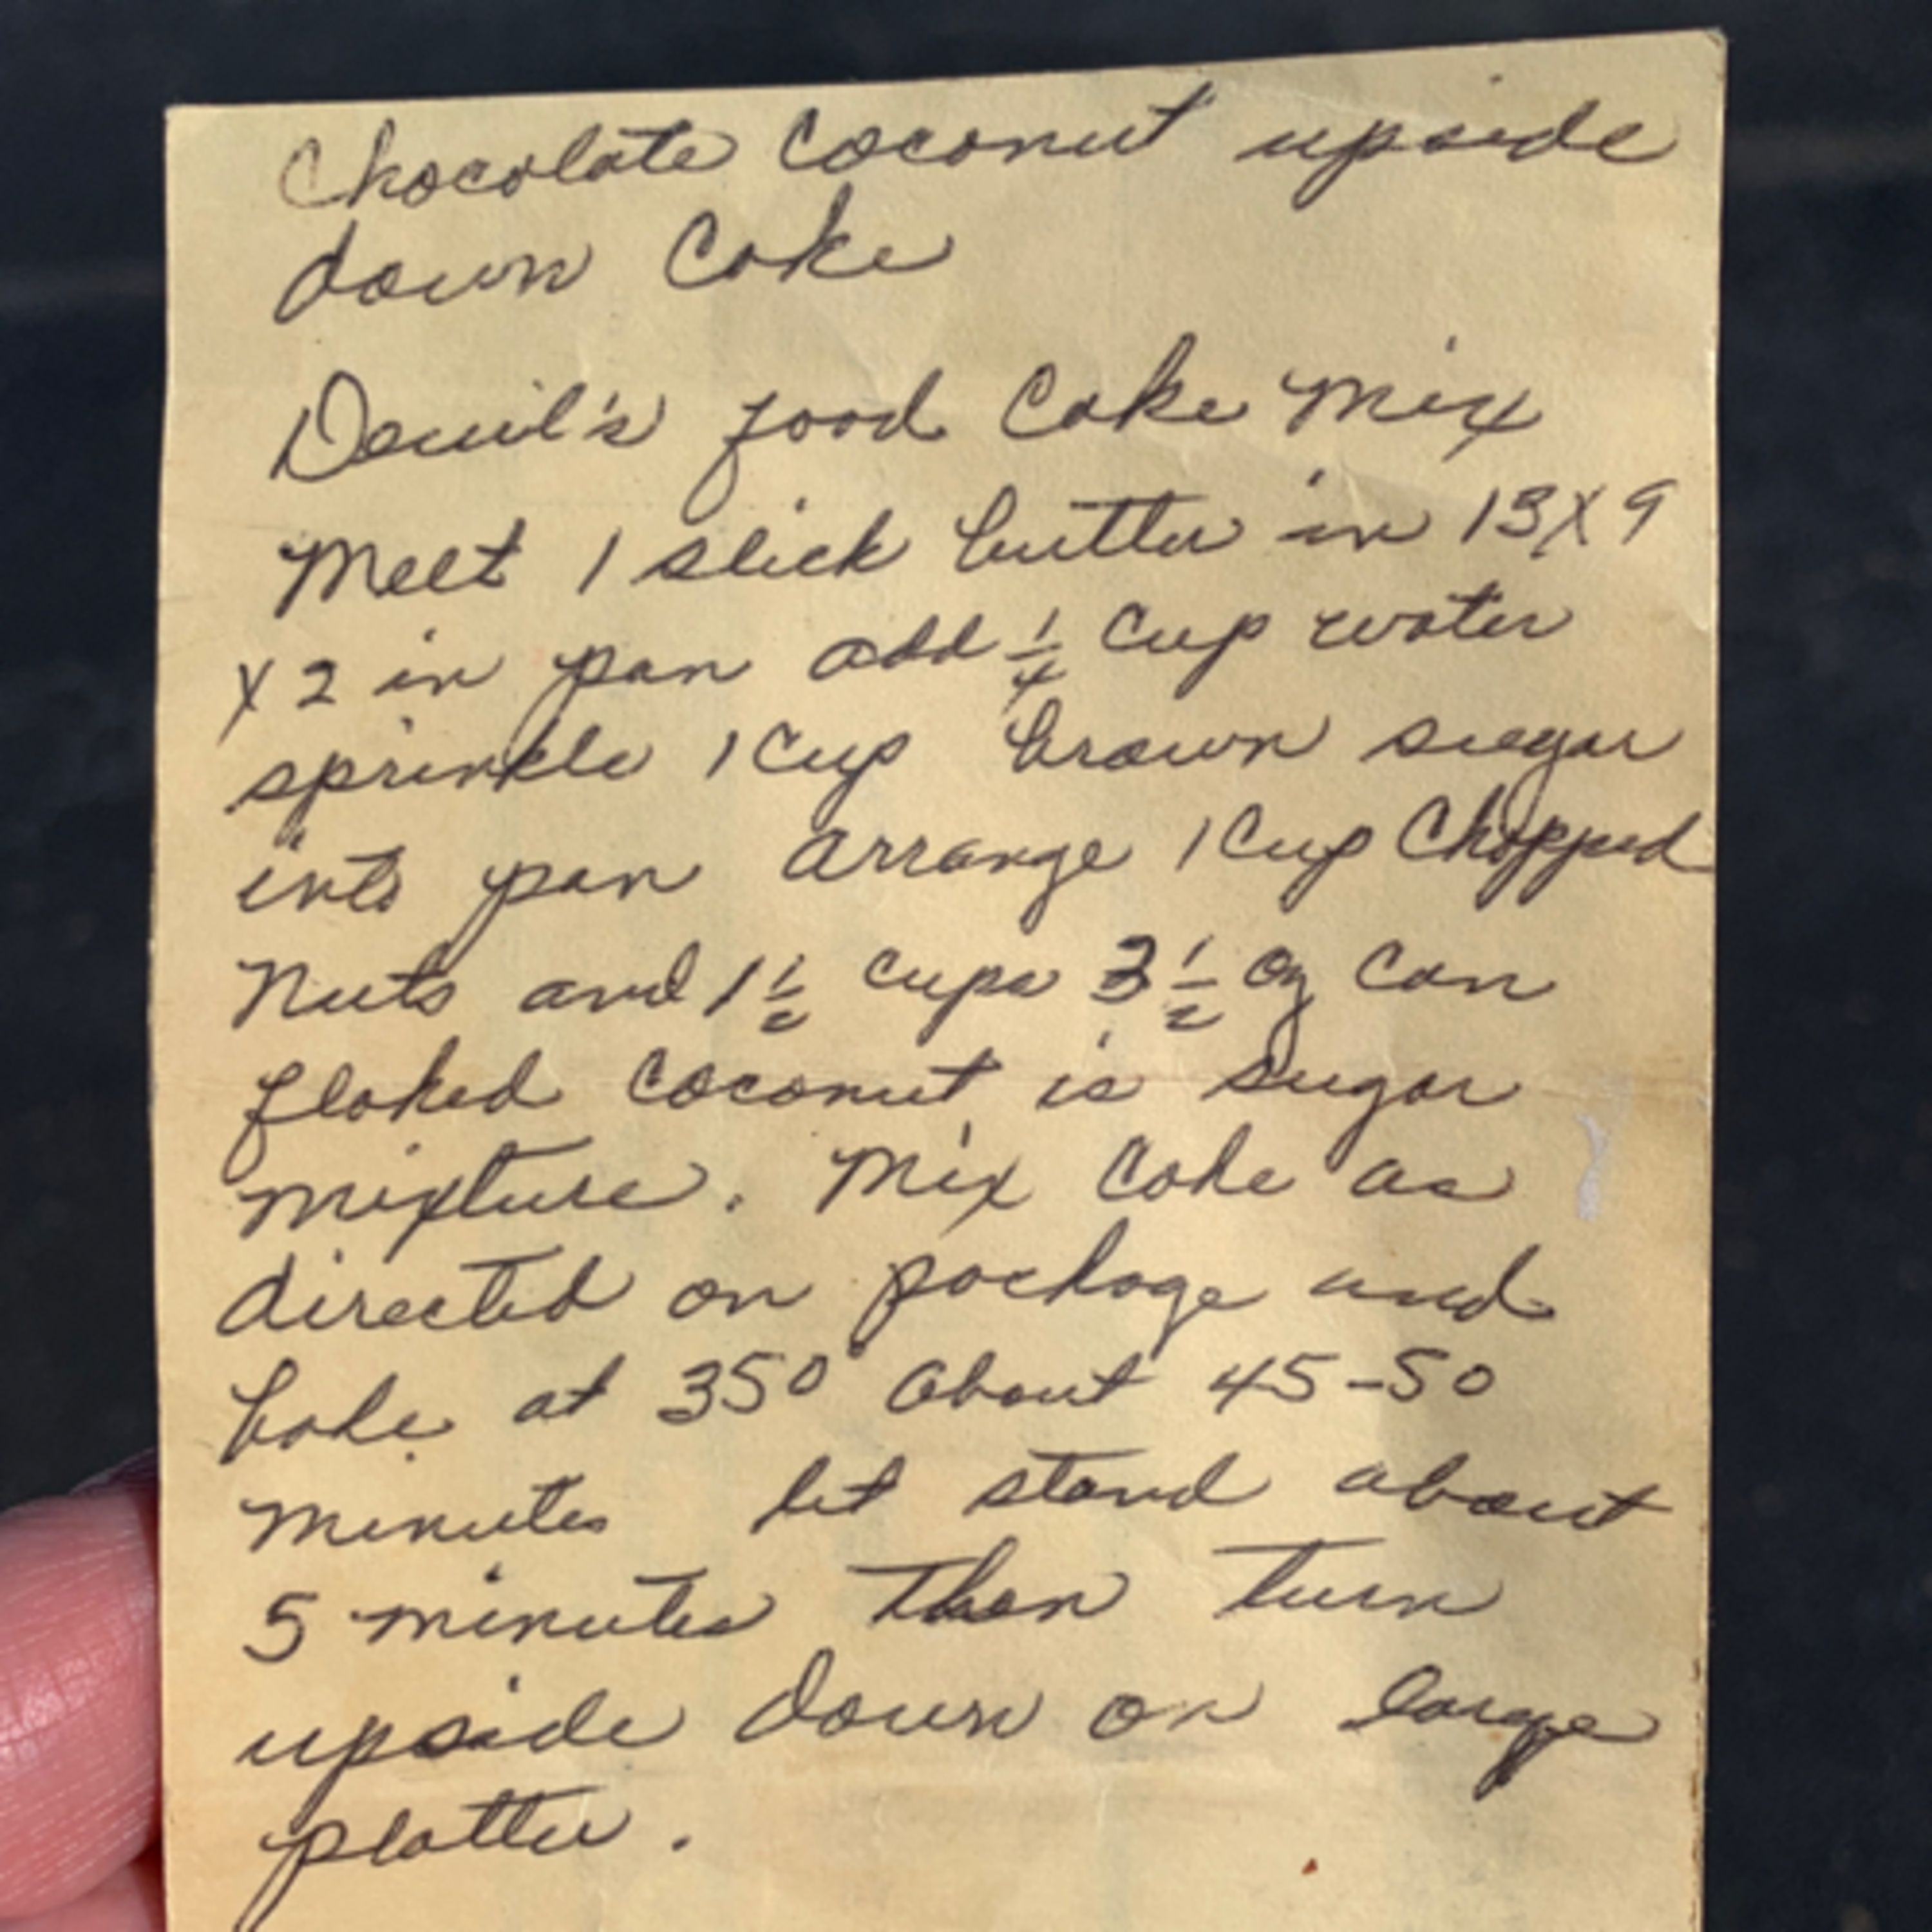 Chocolate Coconut upside
down Cake
Devil's food Cake Mix
Melt 1 stick butter in 13 X 9
X 2 in pan add 1/4 Cup water
sprinkle 1 Cup brown sugar
into pan Arrange 1 Cup Chopped
Nuts and 1 1/2 cups 3 1/2 oz can
flaked Coconut is Sugar
mixture. Mix Cake as
directed on package and
bake at 350° About 45-50
minutes let stand about
5 minutes Then turn
upside down on large
platter.